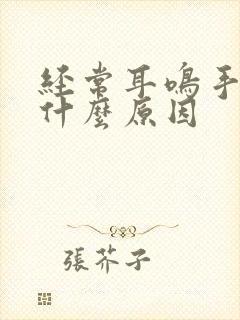 經常耳鳴手
什麼原因
張芥子